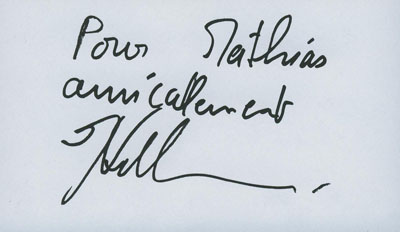 Pour Mathias
amicalement